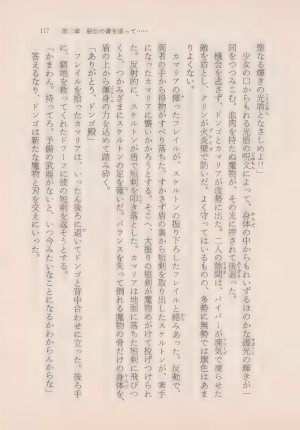 117　第二章　秘伝の書を巡って……
聖なる輝きの光盾となさしめよ‼」
少女の口からもれる光盾の呪文によって、身体の中からもれいずるほのかな護光の輝きが一
同をつつみこむ。血肉を持たぬ魔物が、その光に押されて後退った。
機会を逃さず、ドンゴとカマリアが攻勢に出た。二人の隙間は、バイパーが凍気で凍らせた
敵を盾とし、クリンが火炎壁で防いだ。よく守ってはいるものの、多勢に無勢では旗色はあま
りよくない。
カマリアの揮ったフレイルが、スケルトンの振り下ろしたフレイルと絡みあった。反動で、
両者の手から得物がすべり落ちた。すかさず盾の裏から短剣を取り出したスケルトンが、素手
のカマリアに襲いかかろうとする。そこへ、大振りの短剣が魔物めがけて投げつけられ
た。反射的に、スケルトンが盾で短剣を叩き落とした。カマリアは地面に落ちた短剣に飛びつ
くと、つかみざまにスケルトンの足を薙いだ。バランスを失って倒れる魔物の骨だけの身体を、
盾の上から渾身の力を込めて踏み砕く。
「ありがとう、ドンゴ殿」
フレイルを拾ったカマリアは、いったん後ろに退いてドンゴと背中合わせに立った。後ろ手
に、窮地を救ってくれたドワーフに彼の短剣を返そうとする。
「かまわん。持ってろ。予備の武器がないと、いつ今みたいなことになるかわからんからな」
答えるなり、ドンゴは新たな魔物と刃を交えにいった。